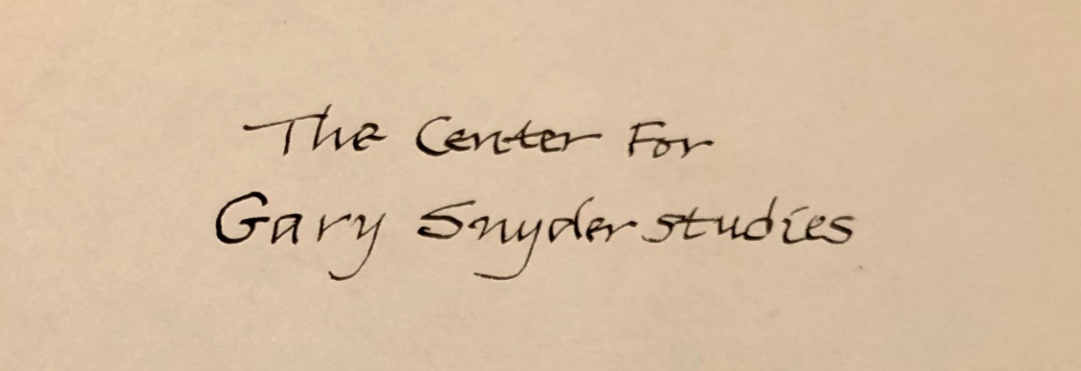 The Center For
Gary Snyder studies